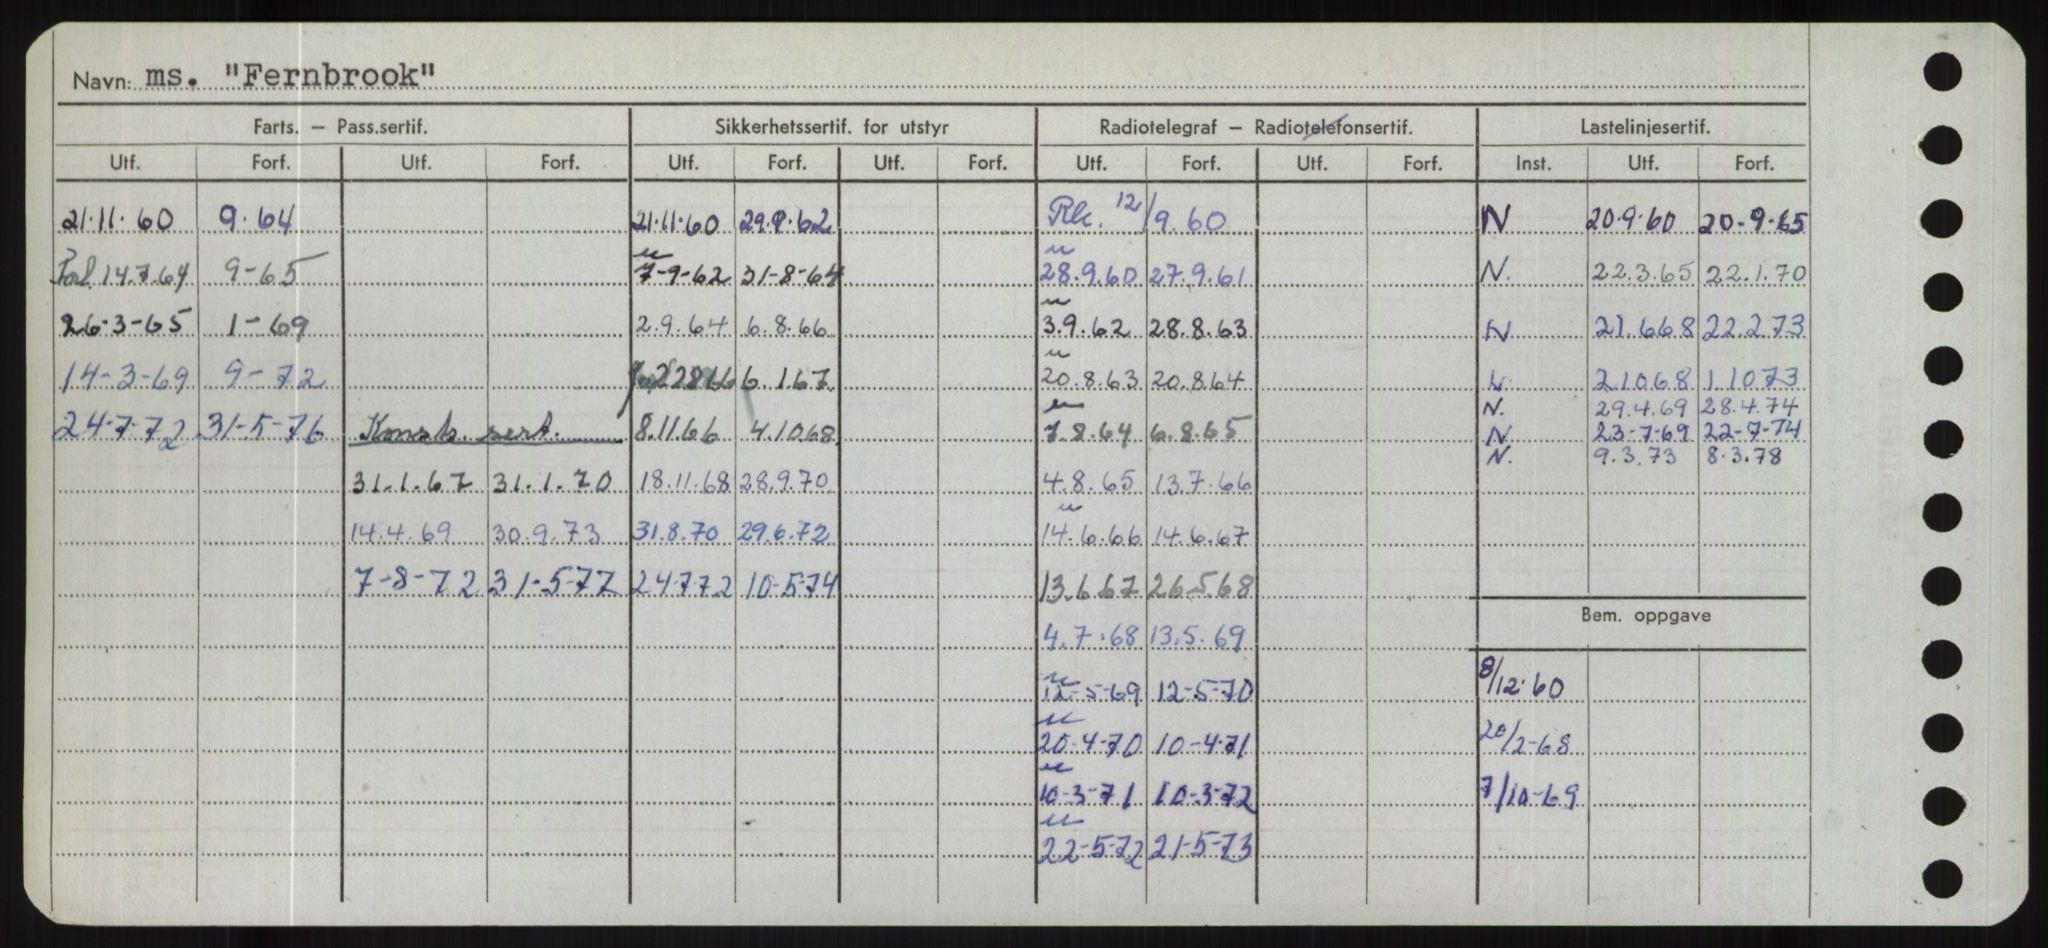 Navn: ms. "Fernbrook"
Farts. – Pass.sertif. Sikkerhetssertif. for utstyr Radiotelegraf – Radiotelefonsertif. Lastelinjesertif.
Utf. Forf. Utf. Forf. Utf. Forf. Utf. Forf. Utf. Forf. Utf. Forf. Inst. Utf. Forf.
21.11.60 9.64 21.11.60 29.9.62 Rk. 12/9.60 N 20.9.60 20-9-65
14.7.64 9-65 7-9-62 31-8-64 28.9.60 27.9.61 N. 22.3.65 22.1.70
26-3-65 1-69 2.9.64 6.8.66 3.9.62 28.8.63 N 21.668 22.2.73
14-3-69 9-72 6.1.67 20.8.63 20.8.64 L. 21068 11073
N. 29.4.69 28.4.74
24-7-72 31-5-76 Konstr. sert. 8.11.66 4.10.68 7.8.64 6.8.65 N 23-7-69 22-7-74
N. 9.3.73 8.3.78
31.1.67 31.1.70 18.11.68 28.9.70 4.8.65 13.7.66
14.4.69 30.9.73 31.8.70 29.6.72 14.6.66 14.6.67
7-8-72 31-5-77 24772 10-5-74 13.6.67 26.5.68
Bem. oppgave
4.7.68 13.5.69
12-5-69 12-5-70 8/12.60
20-4-70 10-4-71 20/2-68
10-3-71 10-3-72 7/10-69
22-5-72 21-5-73